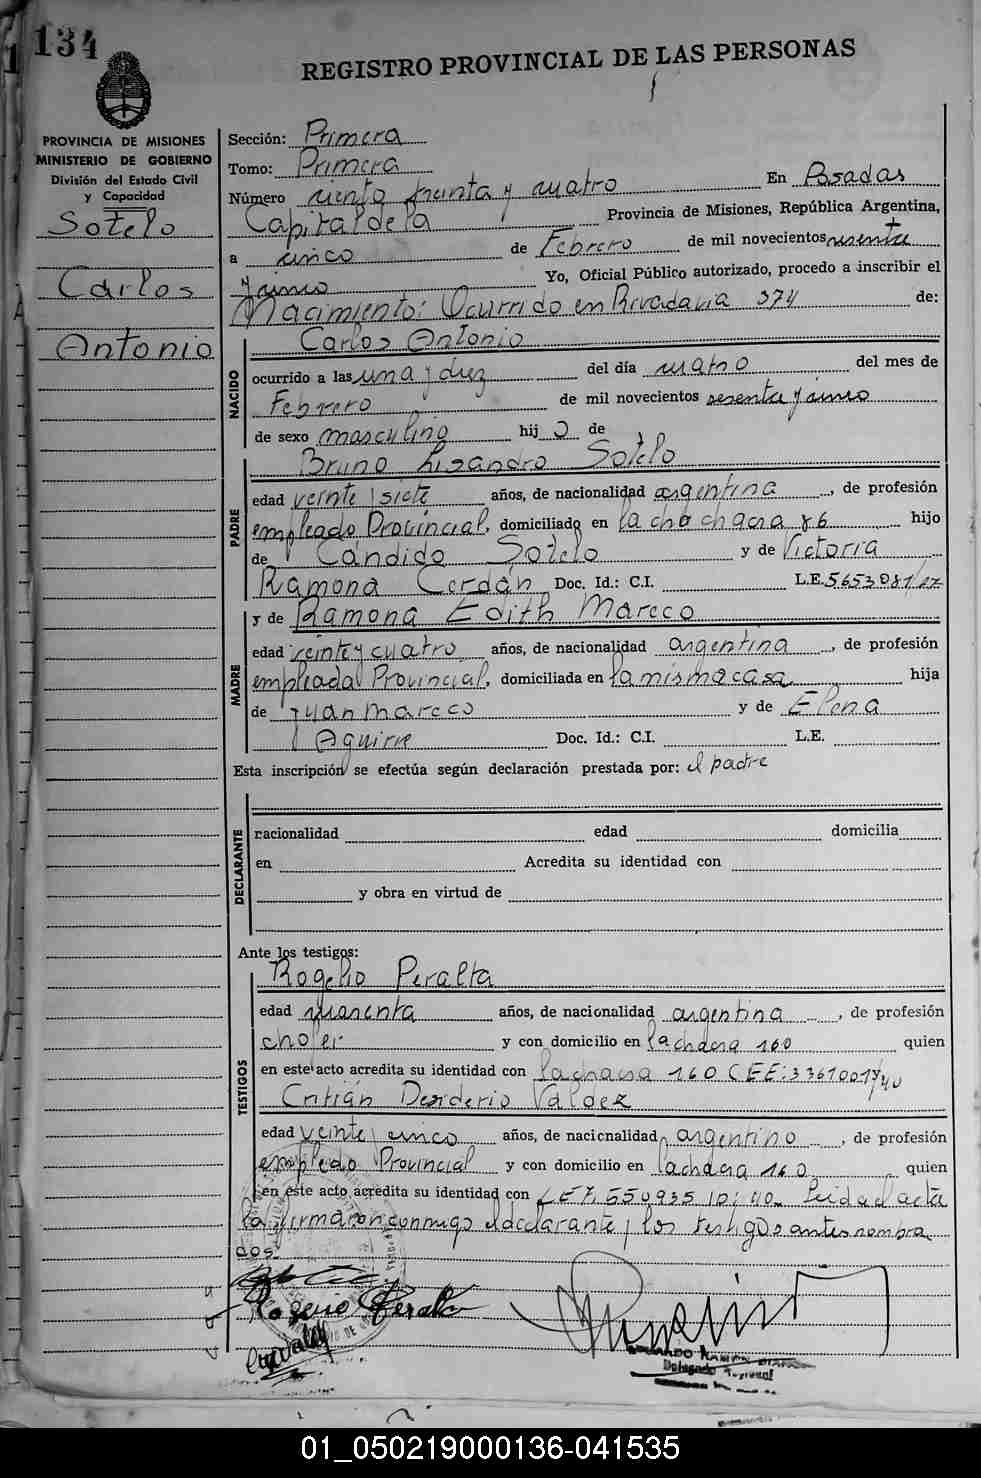 134
REGISTRO PROVINCIAL DE LAS PERSONAS
PROVINCIA DE MISIONES
MINISTERIO DE GOBIERNO
División del Estado Civil
y Capacidad
Sotelo
Carlos
Antonio
Sección: Primera
Tomo: Primera
Número ciento treinta y cuatro En Posadas
Capital de la Provincia de Misiones, República Argentina,
a cinco de Febrero de mil novecientos sesenta
y cinco Yo, Oficial Público autorizado, procedo a inscribir el
Nacimiento: Ocurrido en Rivadavia 374 de:
NACIDO
Carlos Antonio
ocurrido a las una y diez del día cuatro del mes de
Febrero de mil novecientos sesenta y cinco
de sexo masculino hijo de
Bruno Lisandro Sotelo
PADRE
edad veinte siete años, de nacionalidad argentina, de profesión
empleado Provincial, domiciliado en la chachara 86 hijo
de Cándido Sotelo y de Victoria
Ramona Cerdán Doc. Id.: C.I. L.E. 5653981
y de Ramona Edith Mareco
MADRE
edad veinte y cuatro años, de nacionalidad argentina, de profesión
empleada Provincial, domiciliada en la misma casa hija
de Juan Mareco y de Elena
Aguirre Doc. Id.: C.I. L.E.
Esta inscripción se efectúa según declaración prestada por: el padre
DECLARANTE
racionalidad edad domicilia
en Acredita su identidad con
y obra en virtud de
Ante los testigos:
TESTIGOS
Rogelio Peralta
edad cuarenta años, de nacionalidad argentina, de profesión
chofer y con domicilio en la chacra 160 quien
en este acto acredita su identidad con la chacra 160
Critián Desiderio Valdez
edad veinte cinco años, de nacicnalidad argentino, de profesión
empledo Provincial y con domicilio en la chacra 160 quien
en este acto acredita su identidad con Leida el acta
la firmaron conmigo el declarante y los testigos antes nombra
dos.
Rogelio Peralta
Delegado
01_050219000136-041535